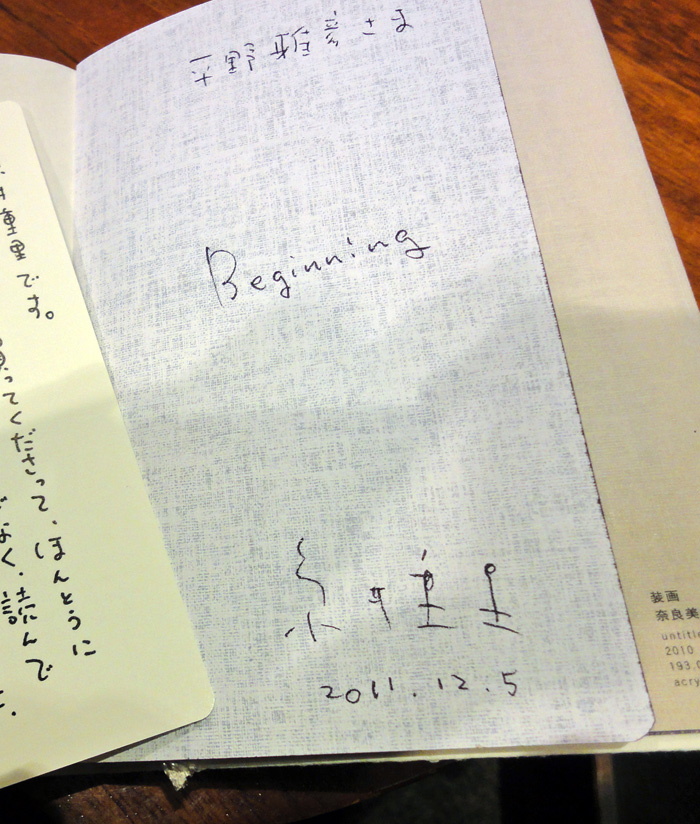 平野雅彦さま
Beginning
糸井重里
2011.12.5
井重里です。
買ってくださって、ほんとうに
なく、読んで
装画
奈良美
untitle
2010
193.0
acry